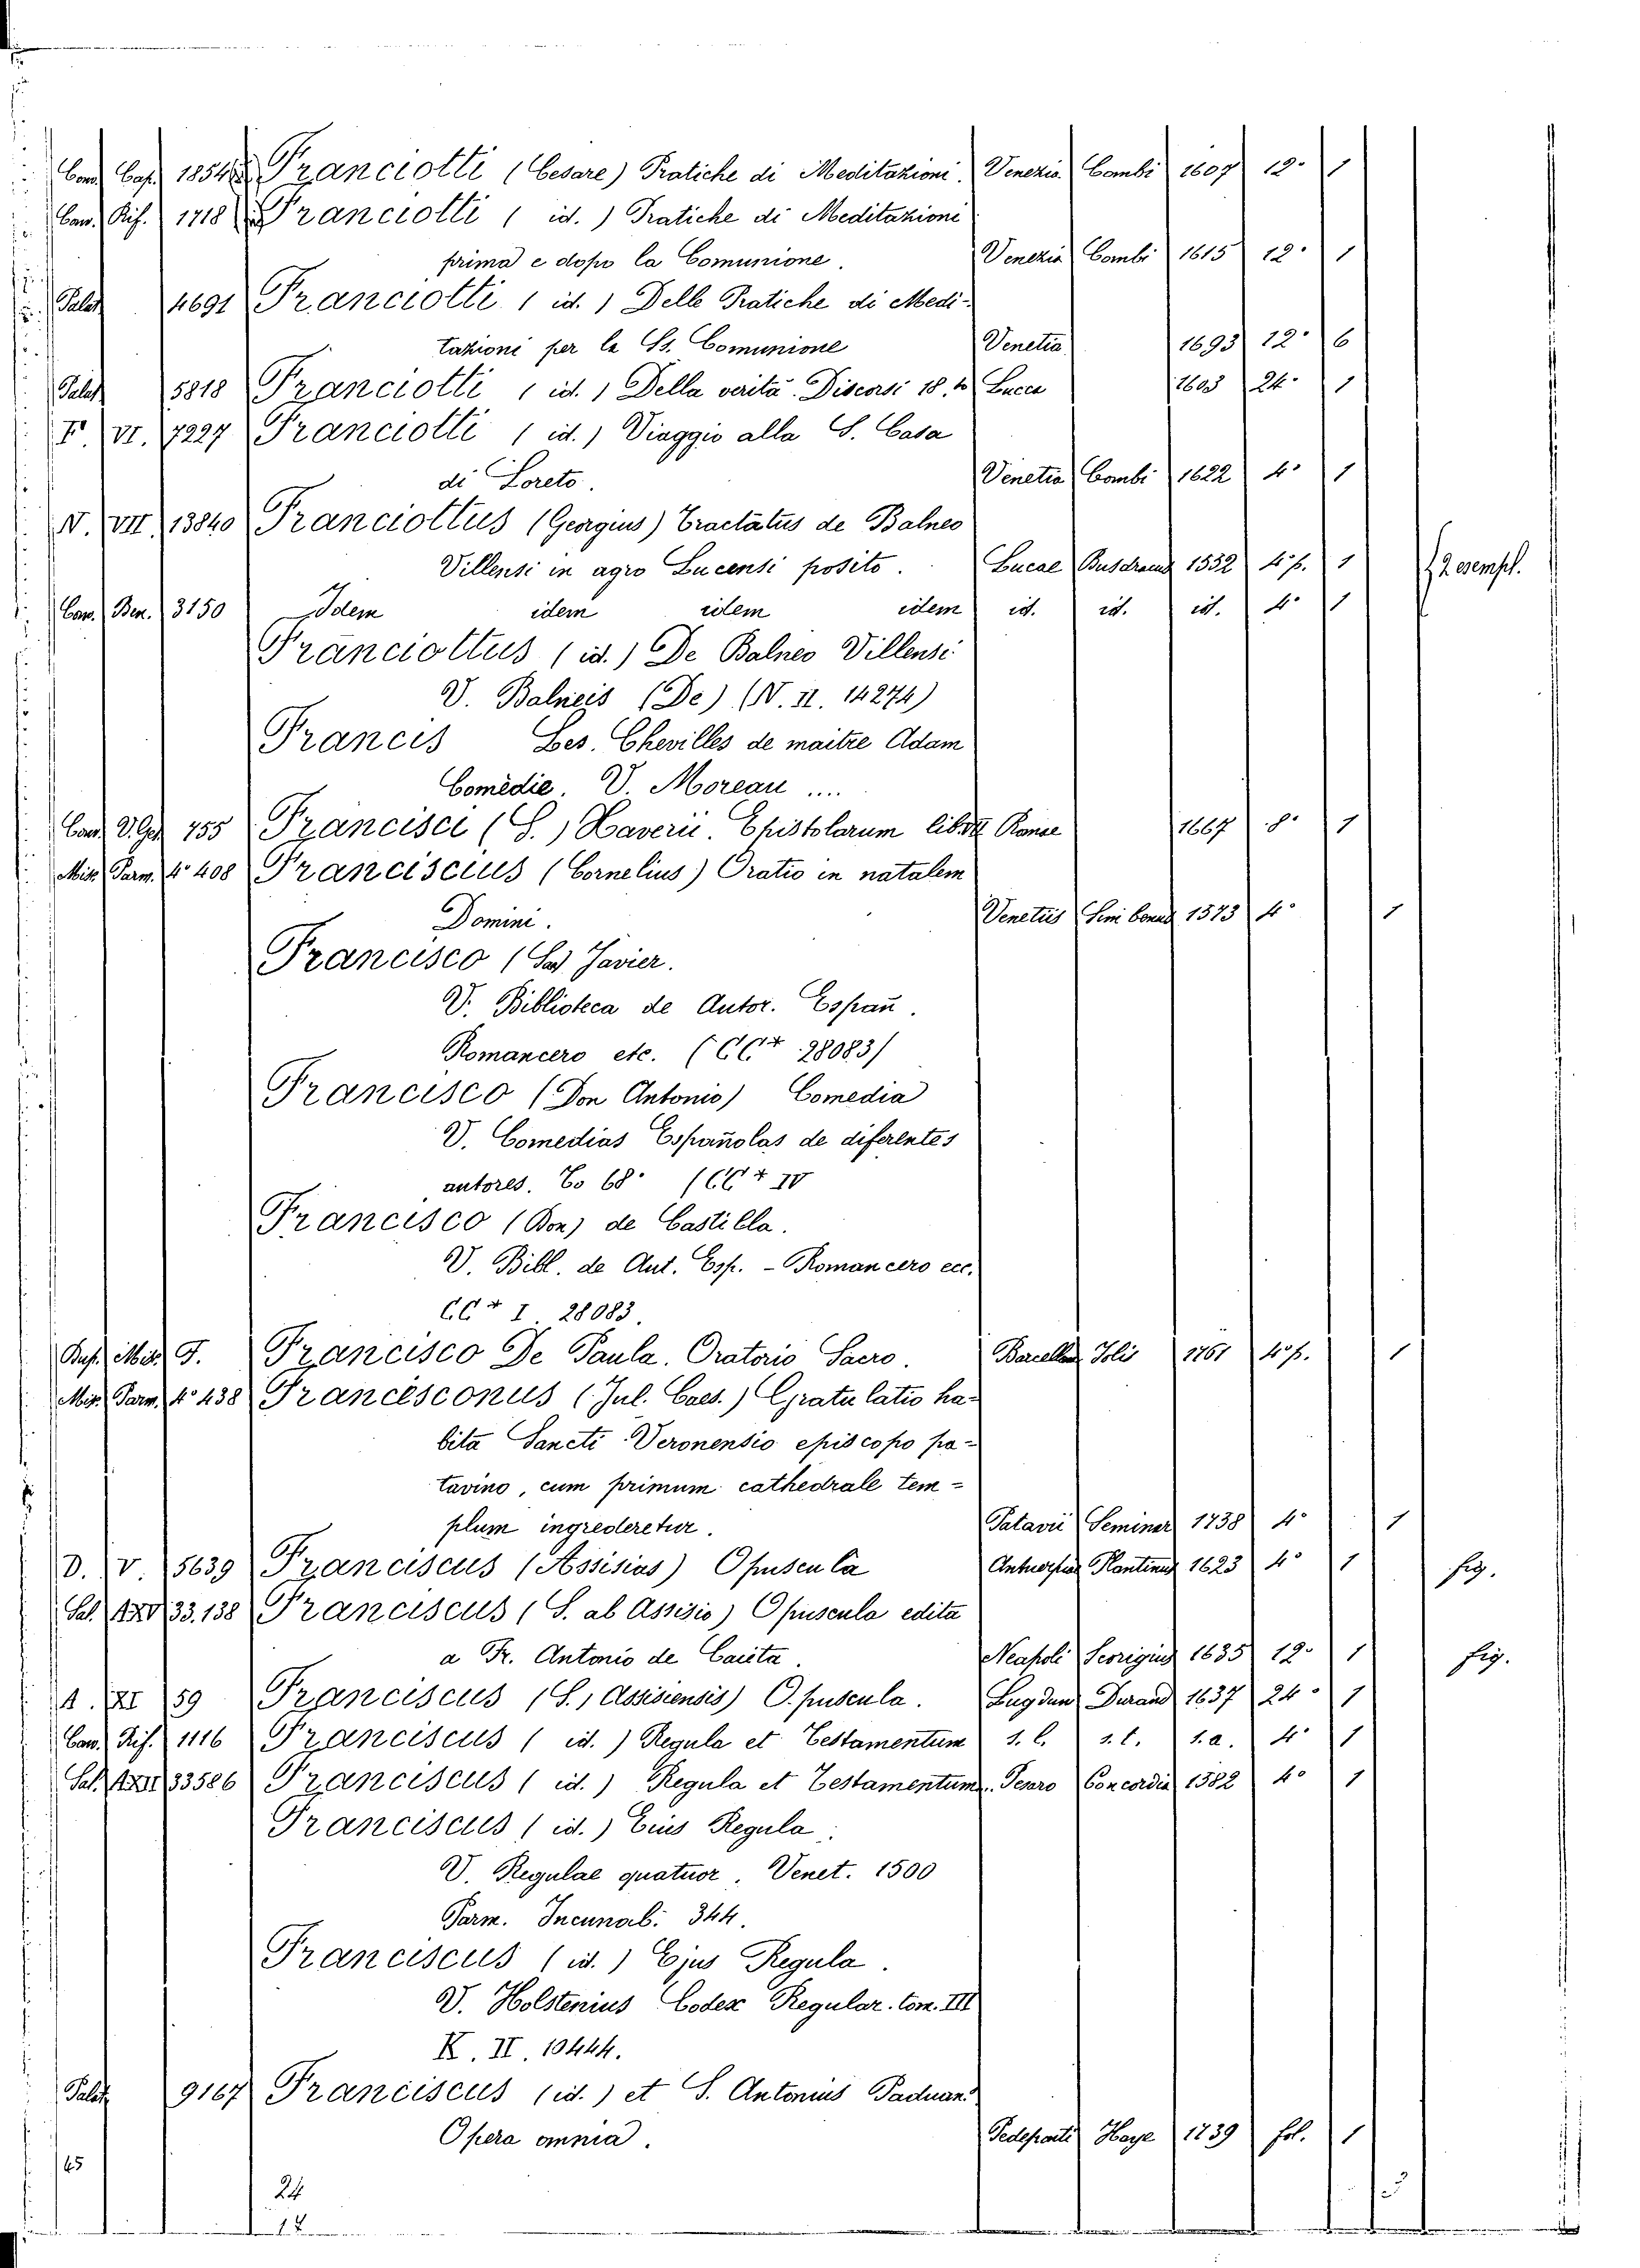 Com. Cap. 1854 Franciotti (Cesare) Pratiche di Meditazioni. Venezia Combi 1607 12° 1
Com. Rif. 1718 Franciotti ( id. ) Pratiche di Meditazioni
prima e dopo la Comunione. Venezia Combi 1615 12° 1
Palat. 4691 Franciotti ( id. ) Delle Pratiche di Medi-
tazioni per la SS. Comunione Venetia 1693 12° 6
Palat. 5818 Franciotti ( id. ) Della verità. Discorsi 18. Lucca 1603 24° 1
F. VI. 7227 Franciotti ( id. ) Viaggio alla S. Casa
di Loreto. Venetia Combi 1622 4° 1
N. VII. 13840 Franciottus (Georgius) Tractatus de Balneo
Villensi in agro Lucensi posito. Lucae Busdrauch 1552 4° p. 1 2 esempl.
Com. Ben. 3150 Idem idem idem idem id. id. id. 4° 1
Franciottus ( id. ) De Balneo Villensi
V. Balneis (De) (N. II. 14274)
Francis Les Chevilles de maitre Adam
Comédie. V. Moreau ....
Com. V. Gen. 755 Francisci (S.) Xaverii. Epistolarum Romae 1667 8° 1
Misc. Parm. 4° 408 Franciscius (Cornelius) Oratio in natalem
Domini. Venetiis 1573 4° 1
Francisco (San) Javier.
V. Biblioteca de Autor. Españ.
Romancero etc. (CC+ 28083)
Francisco (Don Antonio) Comedia
V. Comedias Españolas de diferentes
autores. To 68° (CC+ IV
Francisco (Don) de Castilla.
V. Bibl. de Aut. Esp. - Romancero ecc.
CC+ I 28083.
Misc. F. Francisco De Paula. Oratorio Sacro. Barcellona 1761 4° p. 1
Misc. Parm. 4° 438 Francesconus (Jul. Caes.) Gratulatio ha-
bita Sancti Veronensio episcopo pa-
tavino, cum primum cathedrale tem-
plum ingrederetur. Patavii Seminar. 1738 4° 1
D. V. 5639 Franciscus (Assisias) Opuscula Antuerpiae Plantinus 1623 4° 1 fig.
Sal. 33.138 Franciscus (S. ab Assisio) Opuscula edita
a Fr. Antonio de Caieta. Neapoli Scorigius 1635 12° 1 fig.
A. XI 59 Franciscus (S., Assisiensis) Opuscula. Lugdun. Durand 1637 24° 1
Com. Rif. 1116 Franciscus ( id. ) Regula et Testamentum s. l. s. t. s. a. 4° 1
Sal. 33586 Franciscus ( id. ) Regula et Testamentum. Concordia 1582 4° 1
Franciscus ( id. ) Eius Regula.
V. Regulae quatuor. Venet. 1500
Parm. Incunab. 344.
Franciscus ( id. ) Ejus Regula.
V. Holstenius Codex Regular. tom. III
K. II. 10444.
Palat. 9167 Franciscus (id.) et S. Antonius Paduan.
Opera omnia. Pedeponti Haye 1739 fol. 1
45
24